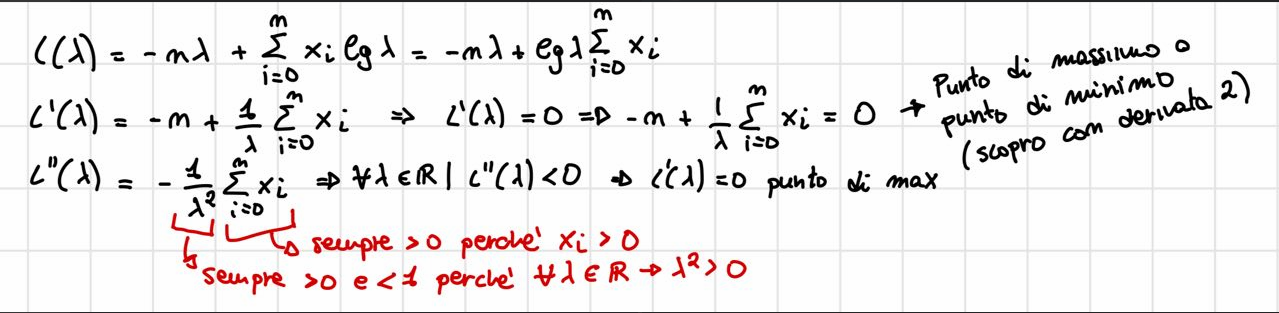 L(λ) = -nλ + Σ_{i=0}^{n} xi lg λ = -nλ + lg λ Σ_{i=0}^{n} xi
L'(λ) = -n + 1/λ Σ_{i=0}^{n} xi ⇒ L'(λ) = 0 ⇒ -n + 1/λ Σ_{i=0}^{n} xi = 0 →
Punto di massimo o
punto di minimo
(scopro con derivata 2)
L''(λ) = - 1/λ² Σ_{i=0}^{n} xi ⇒ ∀λ ∈ ℝ | L''(λ) < 0 ⇒ L'(λ) = 0 punto di max
sempre > 0 perche' xi > 0
sempre > 0 e < 1 perche' ∀λ ∈ ℝ → λ² > 0